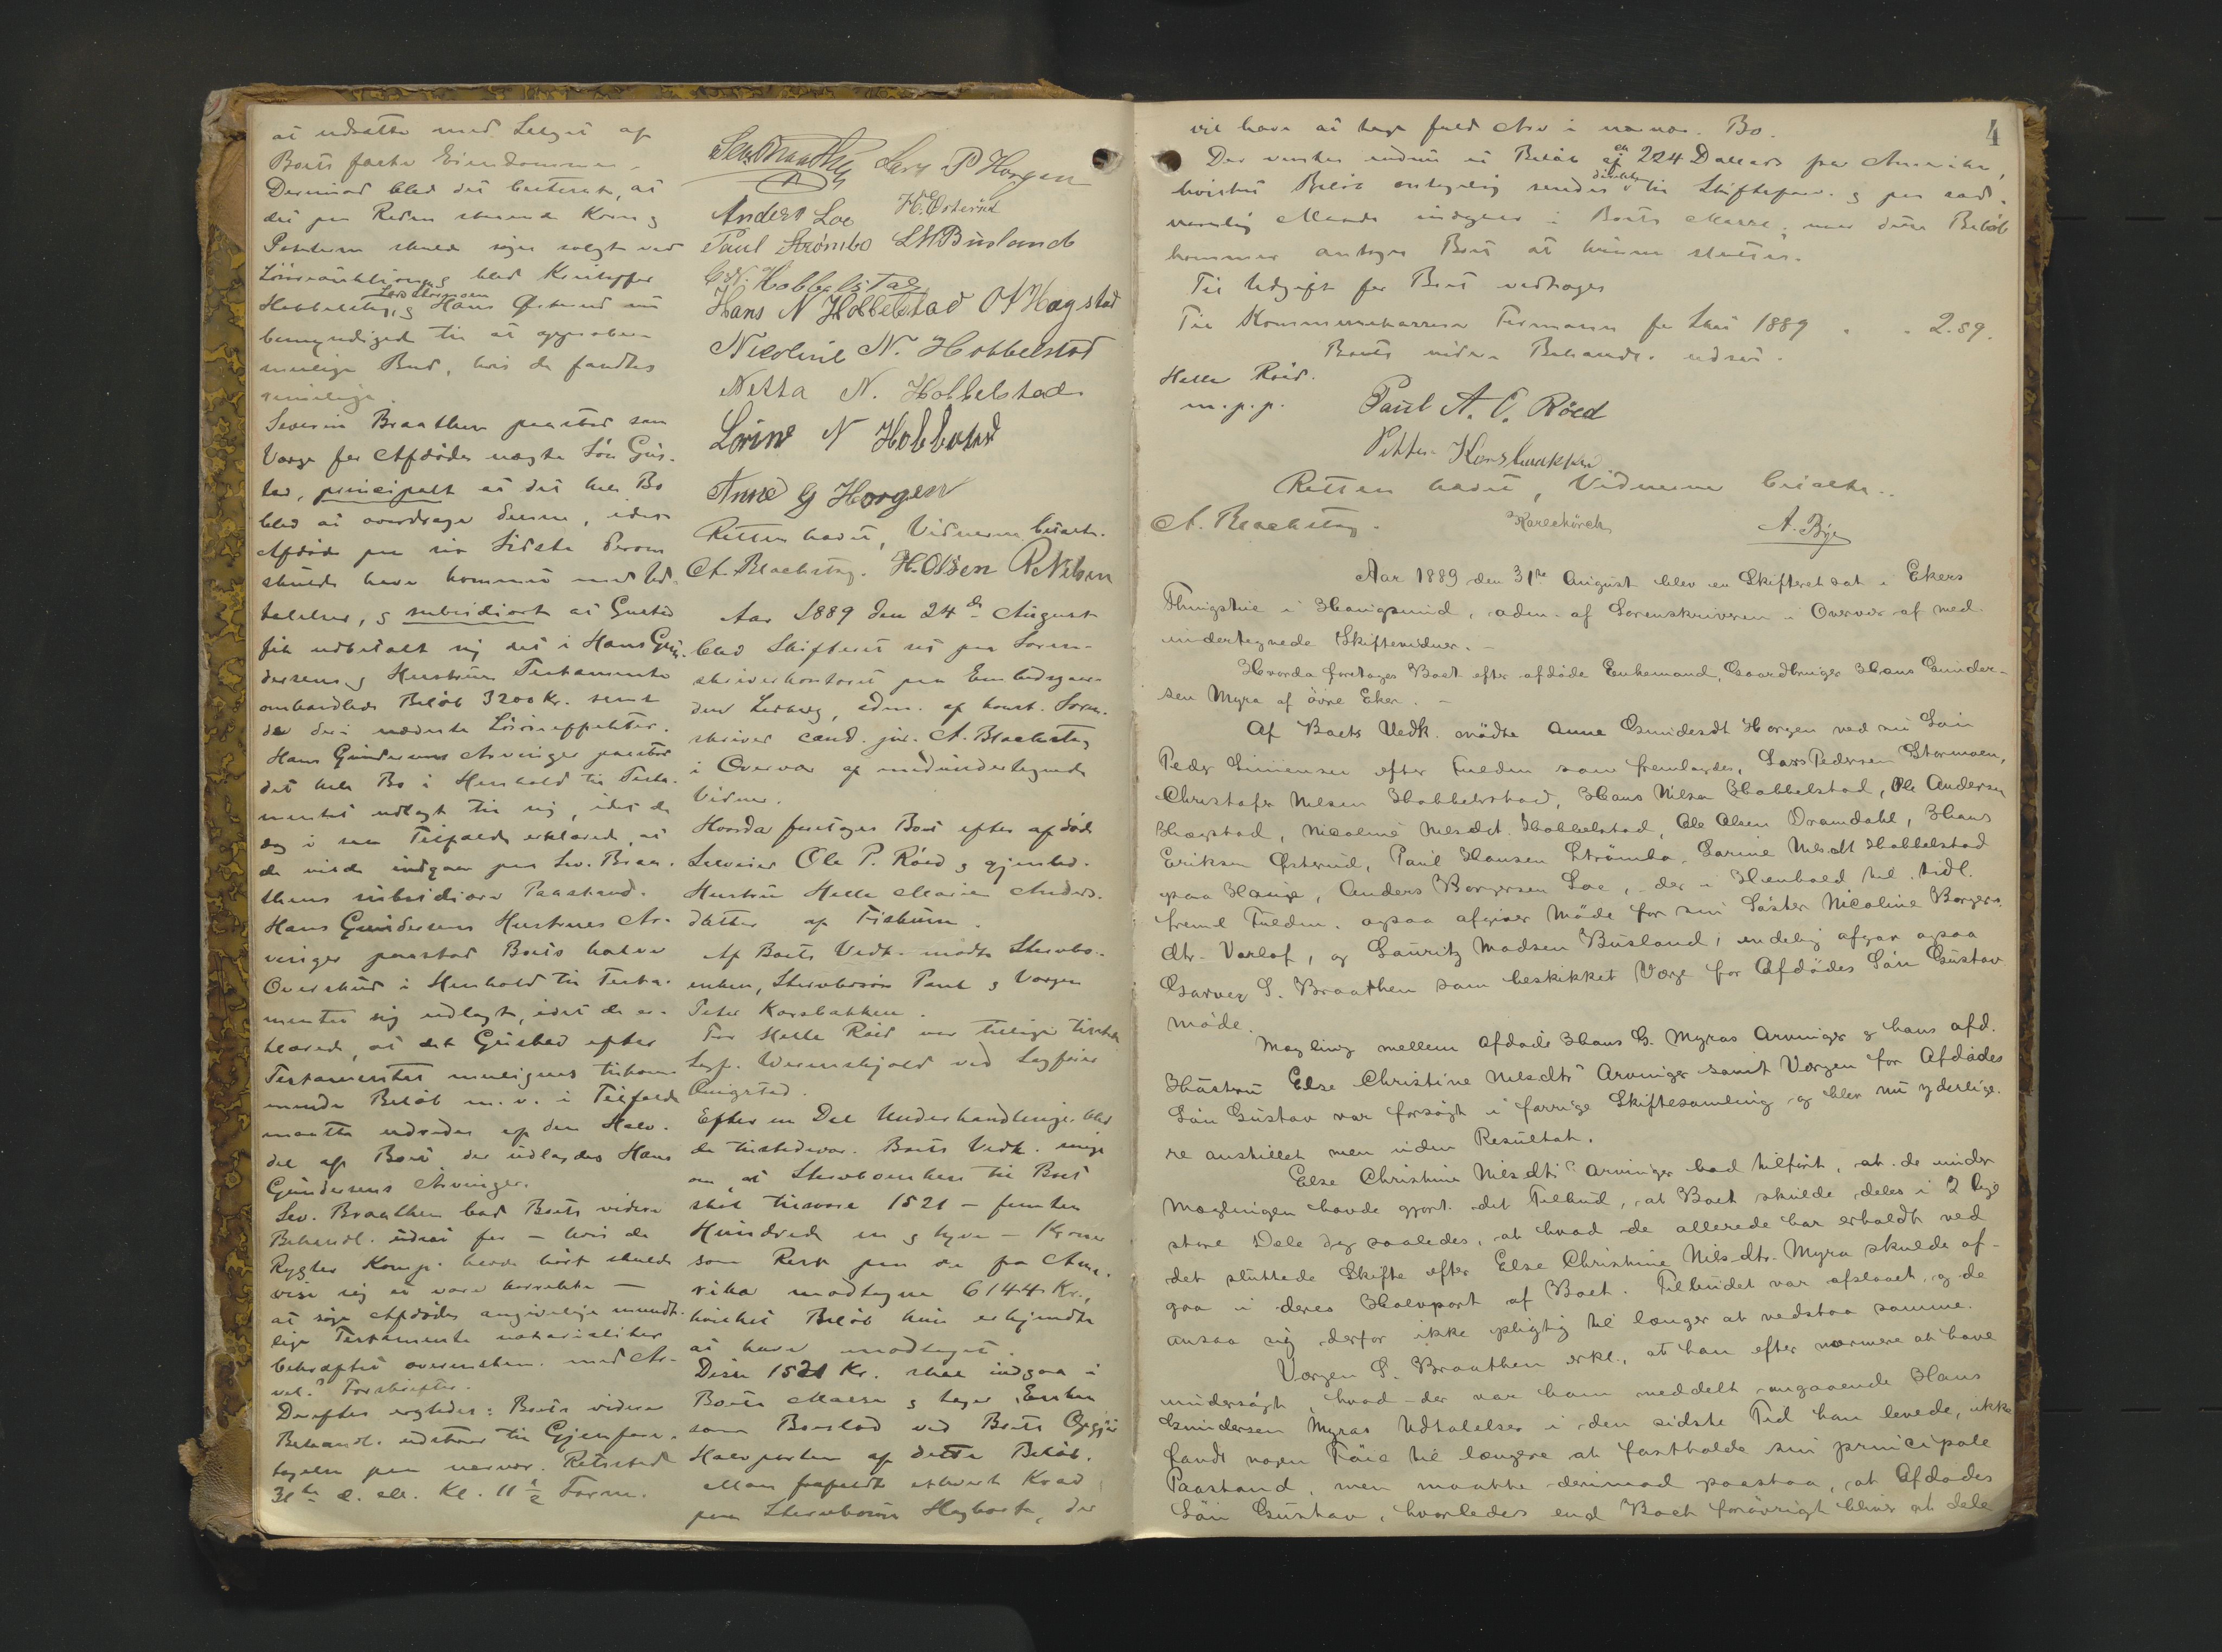 at udsætte med Salget af
Boets faste Eiendomme.
Derimod blev det besternt, at
det paa Roden staaende Korn og
Poteterne skulde søges solgt ved
Løsøreauktion, og blev Kristoffer
Hobbelstad, Lars Stormoen og Hans Østerud
bemyndiget til at approbere
mulige Bud, hvis de fandtes
rimelige.
Severin Braathen paastod som
Værge for Afdødes uægte Søn Gus-
tav, principalt at det hele Bo
blev at overdrage denne, idet
Afdøde paa sin Sidste derom
skulde have kommet med Ud-
talelser, og subsidiært at Gustav
fik udbetalt sig det i Hans Gun-
dersens og Hustrues Testamente
omhandlede Beløb 3200 Kr. samt
de deri nævnte Løsøreeffekter.
Hans Gundersens Arvinger paastod
det hele Bo i Henhold til Testa-
mentet udlagt til sig, idet de
dog i saa Tilfælde erklærede, at
de vilde indgaa paa Sev. Braa-
thens subsidiære Paastand.
Hans Gundersens Hustrues Ar-
vinger paastod Boets halve
Overskud i Henhold til Testa-
mentet sig udlagt, idet de er-
klærede, at det Gustav efter
Testamentet muligens tilkom-
mende Beløb m. v. i Tilfælde
maatte udredes af den Halv-
del af Boet, der udlagdes Hans
Gundersens Arvinger.
Sev. Braathen bad Boets videre
Behandl. udsat for – hvis de
Rygter Komp. havde hørt skulde
vise sig at være korrekte –
at søge Afdødes angivelige mundt-
lige Testamente notarialiter
bekræftet overensstem. med Ar-
vel.s Forskrifter.
Derefter avgledes: Boets videre
Behandl. udstaar til Gjenfore-
tagelse paa nærvær. Retssted
31te d. M. Kl. 11 1/2 Form.
Sev. Braathen Lars P Horgen
Anders Loe H. Østerud
Paul Strømbo LMBusland
C. N. Hobbelstad
Hans N Hobbelstad O A Hagstad
Nicoline N. Hobbelstad
Netta N. Hobbelstad
Lorine N Hobbelstad
Anne G Horgen
Retten hævet, Vidnerne betalte.
A. Blachstag. H. Olsen R Nilsen
Aar 1889 den 24de August
blev Skifteret sat paa Soren-
skriverkontoret paa Embedsgaar-
den Ledberg, adm. af const. Soren-
skriver cand. jur. A. Blachstag
i Overvær af medundertegnede
Vidner.
Hvorda foretages Boet efter afdøde
Selveier Ole P. Röed og gjenlev.
Hustru Helle Marie Anders-
datter af Fiskum.
Af Boets Vedk. mødte Stervbo-
enken, Stervbosøn Paul og Værgen
Peter Korsbakken.
For Helle Röed var tillige tilstede
Sagf. Wermskjold ved Sagfører
Omgstad.
Efter en Del Underhandlinger blev
de tilstedevær. Boets Vedk. enige
om, at Stervboenken til Boet
skal tilsvare 1521 – femten
Hundrede en og tyve – Kroner
som Rest paa de fra Ame-
rika modtagne 6144 Kr.,
hvilket Beløb hun erkjendte
at have modtaget.
Disse 1521 Kr. skal indgaa i
Boets Masse og tager Enken
som Boeslod ved Boets Opgjør
Halvparten af dette Beløb.
Man frafaldt ethvert Krav
paa Stervbosøn Hagbart, der
4
vil have at tage fuld Arv i nærvær. Bo.
Der ventes endnu et Beløb af ca 224 Dollars fra Amerika,
hvilket Beløb antagelig sendes direkte til Skifteforv. og paa sæd-
vanlig Maade indgaar i Boets Masse; naar dette Beløb
kommer antages Boet at kunne sluttes.
Til Udgift for Boet vedtoges
Til Kommunekasserer Tiemann for Skat 1889 . . 2.89.
Boets videre Behandl. udsat.
Helle Röed.
m. p. p. Paul A. O. Röed
Petter Korsbakken
Retten hævet, Vidnerne betalte.
A. Blachstag. Kaschörch A. Bye
Aar 1889 den 31te August blev en Skifteret sat i Ekers
Thingstue i Haugsund, adm. af Sorenskriveren i Overvær af med-
undertegnede Skiftevidner. –
Hvorda foretages Boet efter afdøde Enkemand, Gaardbruger Hans Gunder-
sen Myra af övre Eker. –
Af Boets Vedk. mödte Anne Gundersdt Horgen ved sin Sön
Peder Simensen efter Fuldm som fremlagdes, Lars Pedersen Stormoen,
Christofer Nilsen Hobbelstad, Hans Nilsen Hobbelstad, Ole Andersen
Hagstad, Nicoline Nilsdt. Hobbelstad, Ole Olsen Dramdahl, Hans
Eriksen Østerud, Paul Hansen Strömbo, Lorine Nilsdt Hobbelstad
paa Hauge, Anders Borgersen Loe, der i Henhold til tidl.
freml Fuldm. ogsaa afgiver Möde for sin Søster Nicoline Borgers
dtr. Varlof, og Lauritz Madsen Busland; endelig afgav ogsaa
Garver S. Braathen som beskikket Værge for Afdödes Sön Gustav
Möde.
Mægling mellem Afdöde Hans G. Myras Arvinger og hans afd.
Hustru Else Christine Nilsdtrs Arvinger samt Værgen for Afdödes
Sön Gustav var forsögt i forrige Skiftesamling og blev nu yderlige-
re anstillet men uden Resultat.
Else Christine Nilsdtrs Arvinger bad tilført, at de under
Mæglingen havde gjort det Tilbud, at Boet skulde deles i 2 lige
store Dele dog saaledes, at hvad de allerede har erholdt ved
det sluttede Skifte efter Else Christine Nilsdtr. Myra skulde af-
gaa i deres Halvpart af Boet. Tilbudet var afslaaet, og de
ansaa sig derfor ikke pligtig til længer at vedstaa samme.
Værgen S. Braathen erkl., at han efter nærmere at have
undersögt, hvad der var ham meddelt angaaende Hans
Gundersen Myras Udtalelser i den sidste Tid han levede, ikke
fandt nogen Föie til længere at fastholde sin principale
Paastand, men maatte derimod paastaa, at Afdödes
Sön Gustav, hvorledes end Boet forövrigt bliver at dele